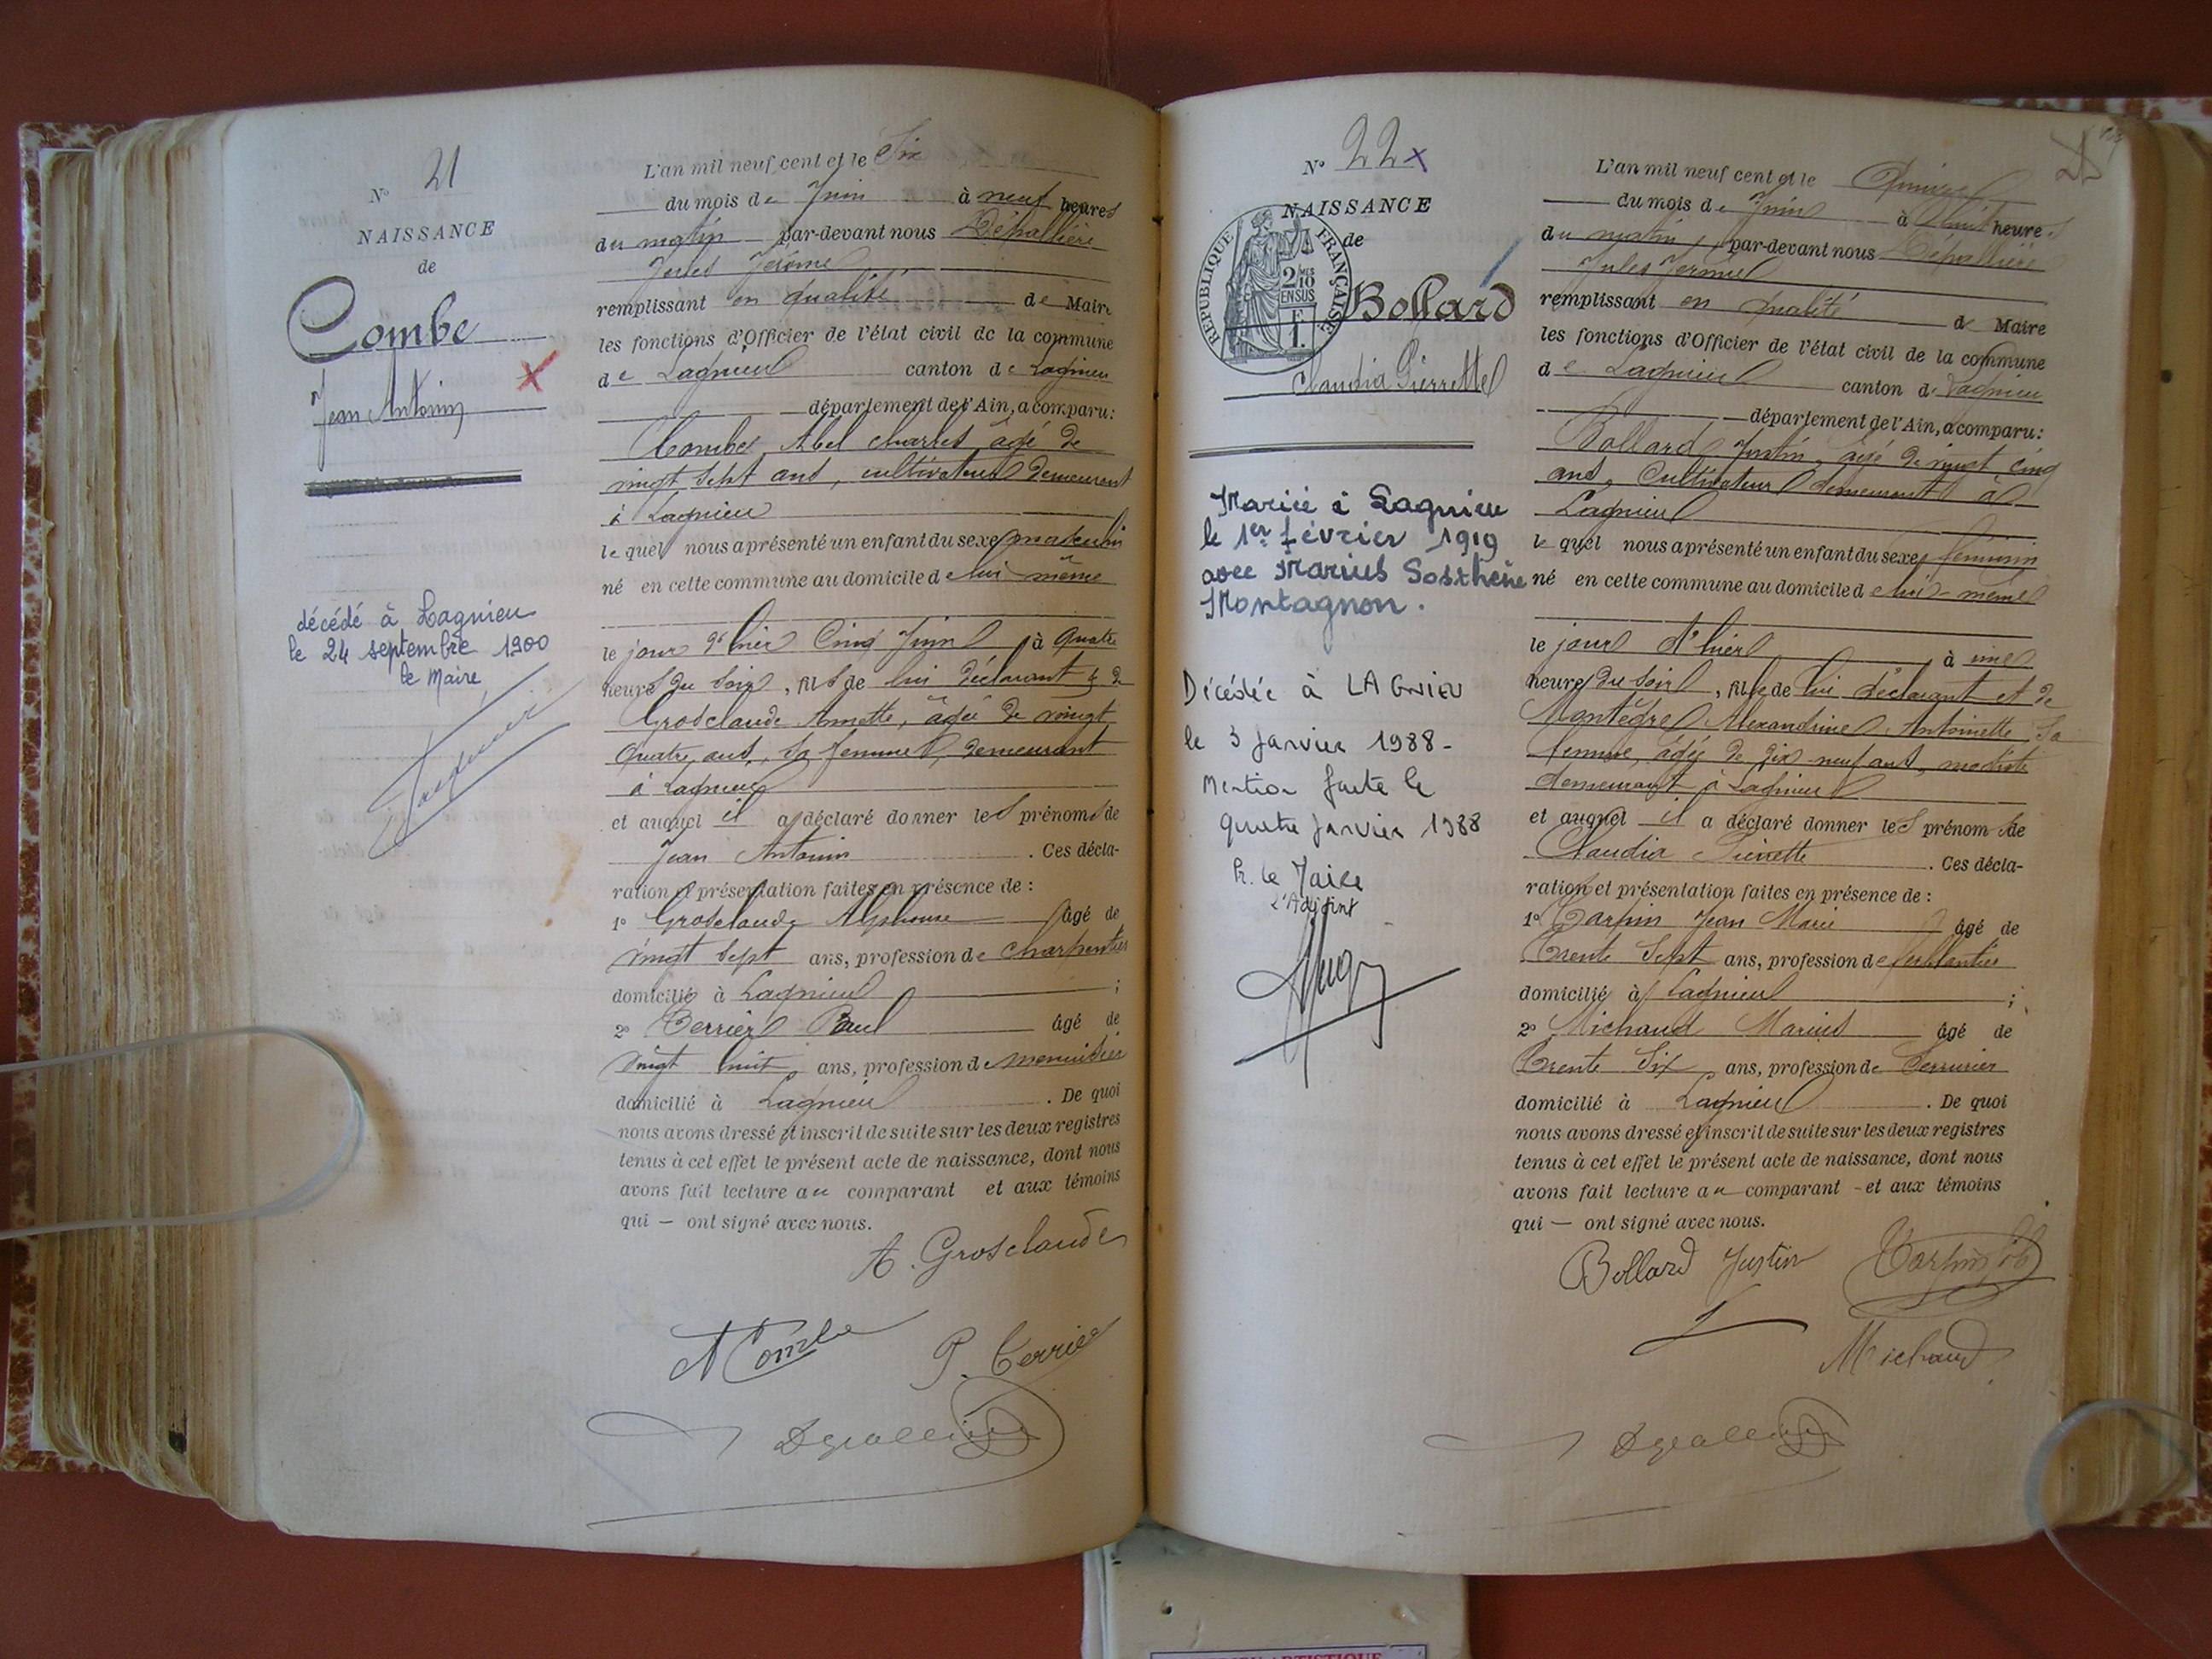 N° 21
NAISSANCE
de
Combe
Jean Antonin
décédé à Lagnieu
le 24 septembre 1900
le Maire
L'an mil neuf cent et le Six
du mois de Juin à neuf heures
du matin par-devant nous Dépallière
Jules Jérôme
remplissant en qualité de Maire
les fonctions d'Officier de l'état civil de la commune
de Lagnieu canton de Lagnieu
département de l'Ain, a comparu:
Combe Abel Charles âgé de
vingt sept ans, cultivateur demeurant
à Lagnieu
lequel nous a présenté un enfant du sexe masculin
né en cette commune au domicile de lui même
le jour d'hier Cinq Juin à quatre
heures du soir, fils de lui déclarant & de
Grosclaude Annette, âgée de vingt
quatre ans, sa femme, demeurant
à Lagnieu
et auquel il a déclaré donner les prénoms de
Jean Antonin . Ces décla-
ration et présentation faites en présence de :
1° Grosclaude Alphonse âgé de
vingt sept ans, profession de charpentier
domicilié à Lagnieu ;
2° Terrier Paul âgé de
vingt huit ans, profession de menuisier
domicilié à Lagnieu . De quoi
nous avons dressé et inscrit de suite sur les deux registres
tenus à cet effet le présent acte de naissance, dont nous
avons fait lecture au comparant et aux témoins
qui — ont signé avec nous.
A. Grosclaude
A Combe P. Terrier
N° 22 x
NAISSANCE
de
REPUBLIQUE FRANÇAISE
2/10
EN SUS
Bollard
Claudia Pierrette
Mariée à Lagnieu
le 1er février 1919
avec Marius Sosthène
Montagnon.
Décédée à LAGNIEU
le 3 janvier 1988-
Mention faite le
quatre janvier 1988
P. le Maire
L'Adjoint
L'an mil neuf cent et le
du mois de Juin à huit heures
du matin, par-devant nous Dépallière
Jules Jérôme
remplissant en qualité de Maire
les fonctions d'Officier de l'état civil de la commune
de Lagnieu canton de Lagnieu
département de l'Ain, a comparu:
Bollard Justin, âgé de vingt cinq
ans, Cultivateur demeurant à
Lagnieu
lequel nous a présenté un enfant du sexe féminin
né en cette commune au domicile de lui-même
le jour d'hier à une
heure du soir, fille de lui déclarant et de
Alexandrine Antoinette, sa
femme, âgée de dix neuf ans, modiste
demeurant à Lagnieu
et auquel il a déclaré donner les prénoms de
Claudia Pierrette . Ces décla-
ration et présentation faites en présence de :
1° Tarpin Jean Marie âgé de
trente sept ans, profession de ferblantier
domicilié à Lagnieu ;
2° Michaud Marius âgé de
trente six ans, profession de Serrurier
domicilié à Lagnieu . De quoi
nous avons dressé et inscrit de suite sur les deux registres
tenus à cet effet le présent acte de naissance, dont nous
avons fait lecture au comparant - et aux témoins
qui — ont signé avec nous.
Bollard Justin Tarpin
Michaud